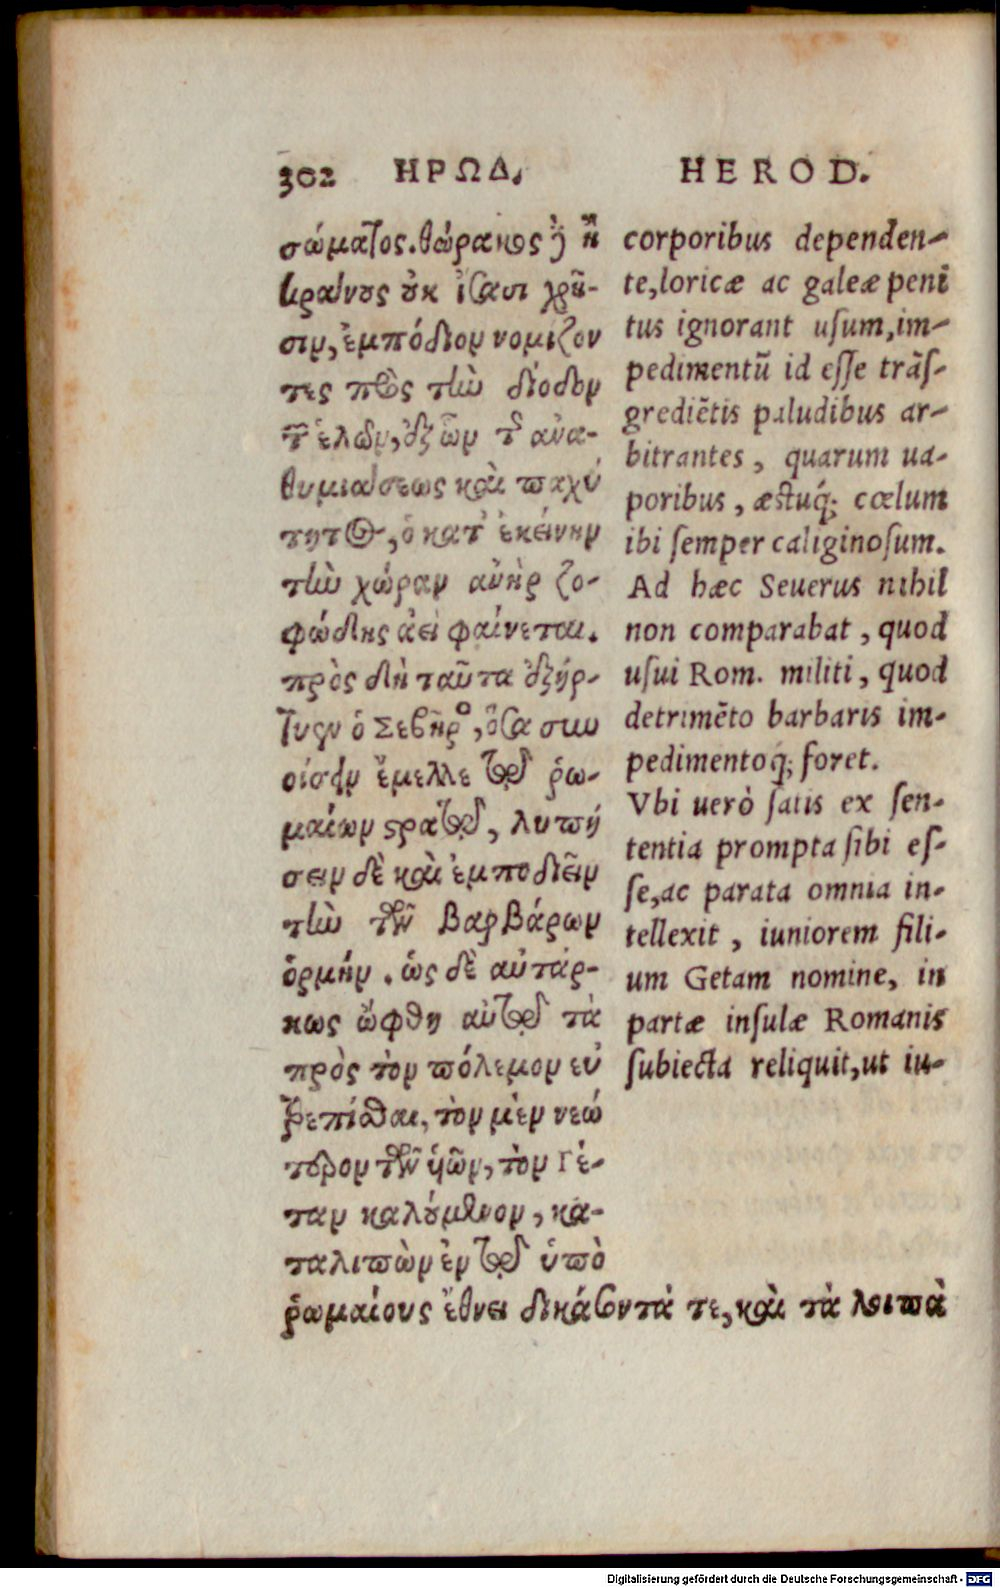 302 ΗΡΩΔ.
σώματος. θώρακος δὲ ἢ
κράνους οὐκ ἴσασι χρῆ-
σιν, ἐμπόδιον νομίζον
τες πρὸς τὴν δίοδον
τῶν ἑλῶν, ἐξ ὧν τῆς ἀνα-
θυμιάσεως καὶ παχύ
τητος, ὁ κατ' ἐκείνην
τὴν χώραν αὐὴρ ζο-
φώδης ἀεὶ φαίνεται.
πρὸς δὴ ταῦτα ἐξήρ-
τυεν ὁ Σεβῆρος, ὅσα συν
οίσειν ἔμελλε τῷ ῥω-
μαίων στρατῷ, λυπή
σειν δὲ καὶ ἐμποδιεῖν
τὴν τῶν βαρβάρων
ὁρμήν. ὡς δὲ αὐτάρ-
κως ὤφθη αὐτῷ τὰ
πρὸς τὸν πόλεμον εὐ
τρεπίσθαι, τὸν μὲν νεώ
τερον τῶν ἡῶν, τὸν Γέ-
ταν καλούμενον, κα-
ταλιπὼν ἐν τῷ ὑπὸ
ῥωμαίους ἔθνει δικάσοντά τε, καὶ τὰ λοιπὰ
HEROD.
corporibus dependen-
te, loricæ ac galeæ peni
tus ignorant usum, im-
pedimentũ id esse trãs-
grediẽtis paludibus ar-
bitrantes, quarum ua-
poribus, æstuq́; cœlum
ibi semper caliginosum.
Ad hæc Seuerus nihil
non comparabat, quod
usui Rom. militi, quod
detrimẽto barbaris im-
pedimentoq́; foret.
Vbi uerò satis ex sen-
tentia prompta sibi es-
se, ac parata omnia in-
tellexit, iuniorem fili-
um Getam nomine, in
partæ insulæ Romanis
subiecta reliquit, ut iu-
Digitalisierung gefördert durch die Deutsche Forschungsgemeinschaft - DFG